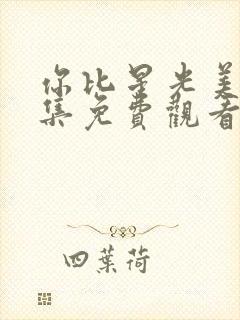 你比星光美
集免費觀看
四葉荷